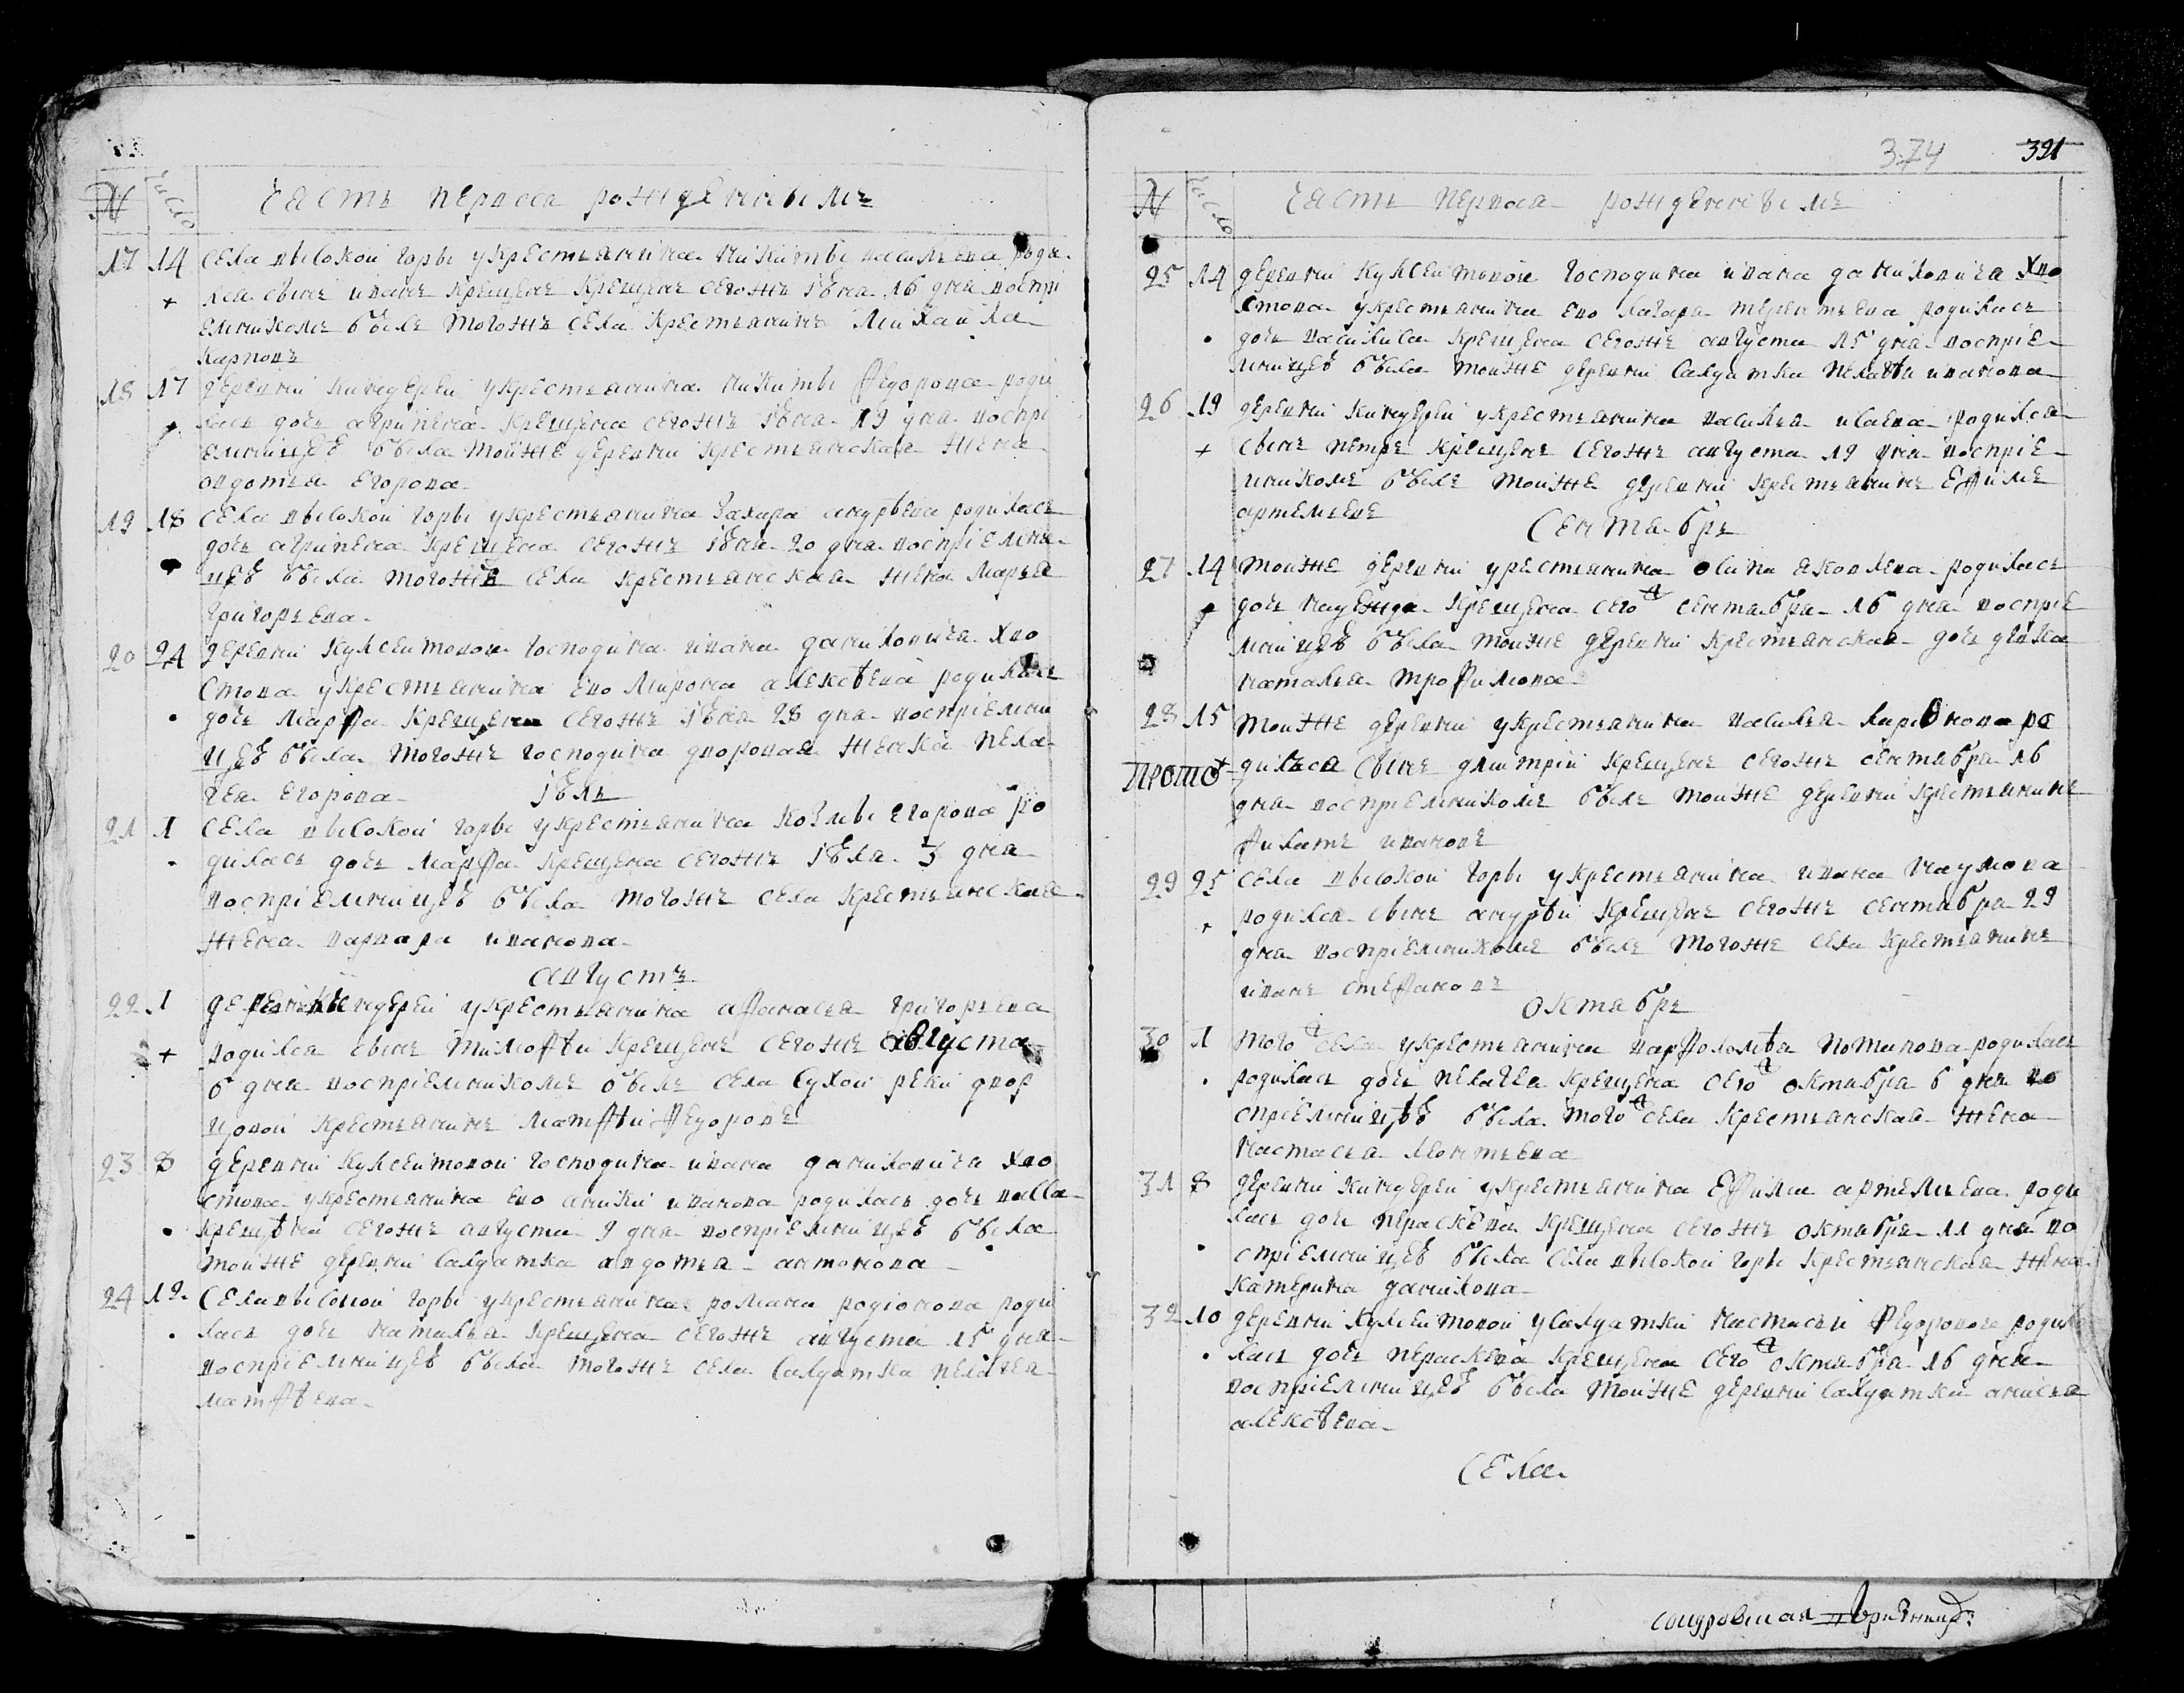 N число часть первая рождённымъ
17 14 села высокой горы укрестьянина никиты васильева роди
лся сынъ иванъ крещенъ крещенъ сегожъ іюня 16 дня воспрі
емникомъ былъ тогожъ села крестьянинъ михайла
карповъ
18 17 деревни кичедереи укрестьянина никиты федорова роди
лась дочь агрипена крещена сегожъ іюня 19 дня воспрі
емницею была тойже деревни крестьянская жена
авдотья егорова
19 18 села высокой горы укрестьянина захара андреева родилась
дочь агрипена крещена сегожъ іюня 20 дня воспріемни
цею была тогожъ села крестьянская жена марья
григорьева
20 24 деревни куксеитовои господина ивана даниловича хво
стова укрестьянина ево мирона алексеева родилась
дочь марфа крещена сегожъ іюня 28 дня воспріемни
цею была тогожъ господина дворовая женка пела
гея егорова
іюль
21 1 села высокой горы укрестьянина козмы егорова ро
дилась дочь марфа крещена сегожъ іюля 3 дня
воспріемницею была тогожъ села крестьянская
жена варвара иванова
августъ
22 1 деревни кичедереи укрестьянина афанасья григорьева
+ родился сынъ тимофѣи крещенъ сегожъ августа
6 дня воспріемникомъ былъ села сухой реки двор
цовои крестьянинъ матфѣи федоровъ
23 8 деревни куксеитовои господина ивана даниловича хво
стова укрестьянина ево аники иванова родилась дочь васса
крещѣна сегожъ августа 9 дня воспріемницею была
тойже деревни салдатка авдотья антонова
24 12 села высокой горы укрестьянина романа родіонова роди
лась дочь наталья крещена сегожъ августа 15 дня
воспріемницею была тогожъ села салдатка пелагея
матфѣева
374 391
N число часть первая рожденнымъ
25 14 деревни куксеитовои господина ивана даниловича хво
стова укрестьянина ево лазаря терентьева родилась
дочь василиса крещена сегожъ августа 15 дня воспріе
мницею была тойже деревни салдатка пелагѣя иванова
26 19 деревни кичедереи укрестьянина василья исаева родился
+ сынъ петръ крещенъ сегожъ августа 19 дня воспріе
мникомъ былъ тойже деревни крестьянинъ ефимъ
артемьевъ
сентябрь
27 14 тойже деревни урестьянина осипа яковлева родилась
дочь надежда крещена сего ж сентября 16 дня воспріе
мницею была тойже деревни крестьянская дочь девка
наталья трофимова
28 15 тойже деревни укрестьянина василья ларионова ро
дился сынъ дмитрій крещенъ сегожъ сентября 16
дня воспріемникомъ былъ тойже деревни крестьянинъ
филатъ ивановъ
29 25 села высокой горы укрестьянина ивана наумова
родился сынъ андрѣй крещенъ сегожъ сентября 29
дня воспріемникомъ былъ тогоже села крестьянинъ
иванъ стефановъ
октябрь
30 1 того ж села укрестьянина варфоломѣя потапова родилась
родилась дочь пелагея крещена сего ж октября 6 дня во
спріемницѣю была того ж села крестьянская жена
настасья леонтьева
31 8 деревни кичедереи укрестьянина ефима артемьева роди
лась дочь пераскева крещена сегожъ октября 11 дня во
спріемницею была села высокой горы крестьянская жена
катерина данилова
32 10 деревни куксеитовои усалдатки настасьи федоровои роди
лась дочь пераскева крещена сего ж октября 16 дня
воспріемницею была тойже деревни салдатки анисья
алексѣева
села